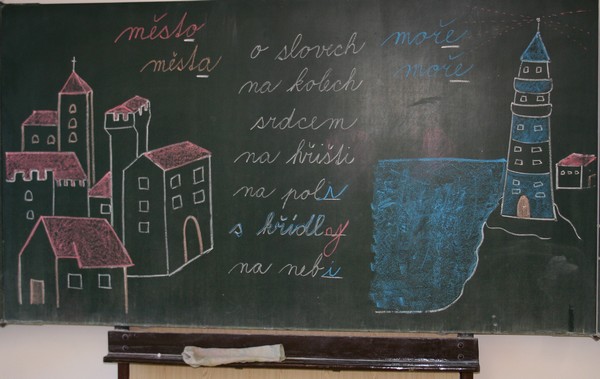 město
města
o slovech
na kolech
srdcem
na hřišti
na poli
s křídly
na nebi
moře
moře